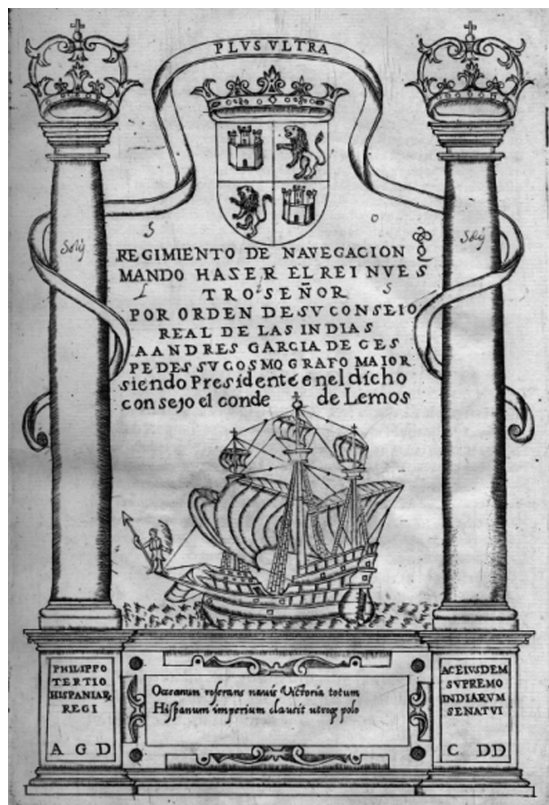 PLVS VLTRA
REGIMIENTO DE NAVEGACION Q̃
MANDO HASER EL REI NVES
TRO SEÑOR
POR ORDEN DE SV CONSEIO
REAL DE LAS INDIAS
A ANDRES GARCIA DE CES
PEDES SV COSMOGRAFO MAIOR
siendo Presidente en el dicho
consejo el conde de Lemos
PHILIPPO
TERTIO
HISPANIAR,
REGI
A G D
Oceanun reserans nauis Victoria totum
Hispanum imperium clausit utroq, polo
AC EIVSDEM
SVPREMO
INDIARVM
SENATVI
C. DD